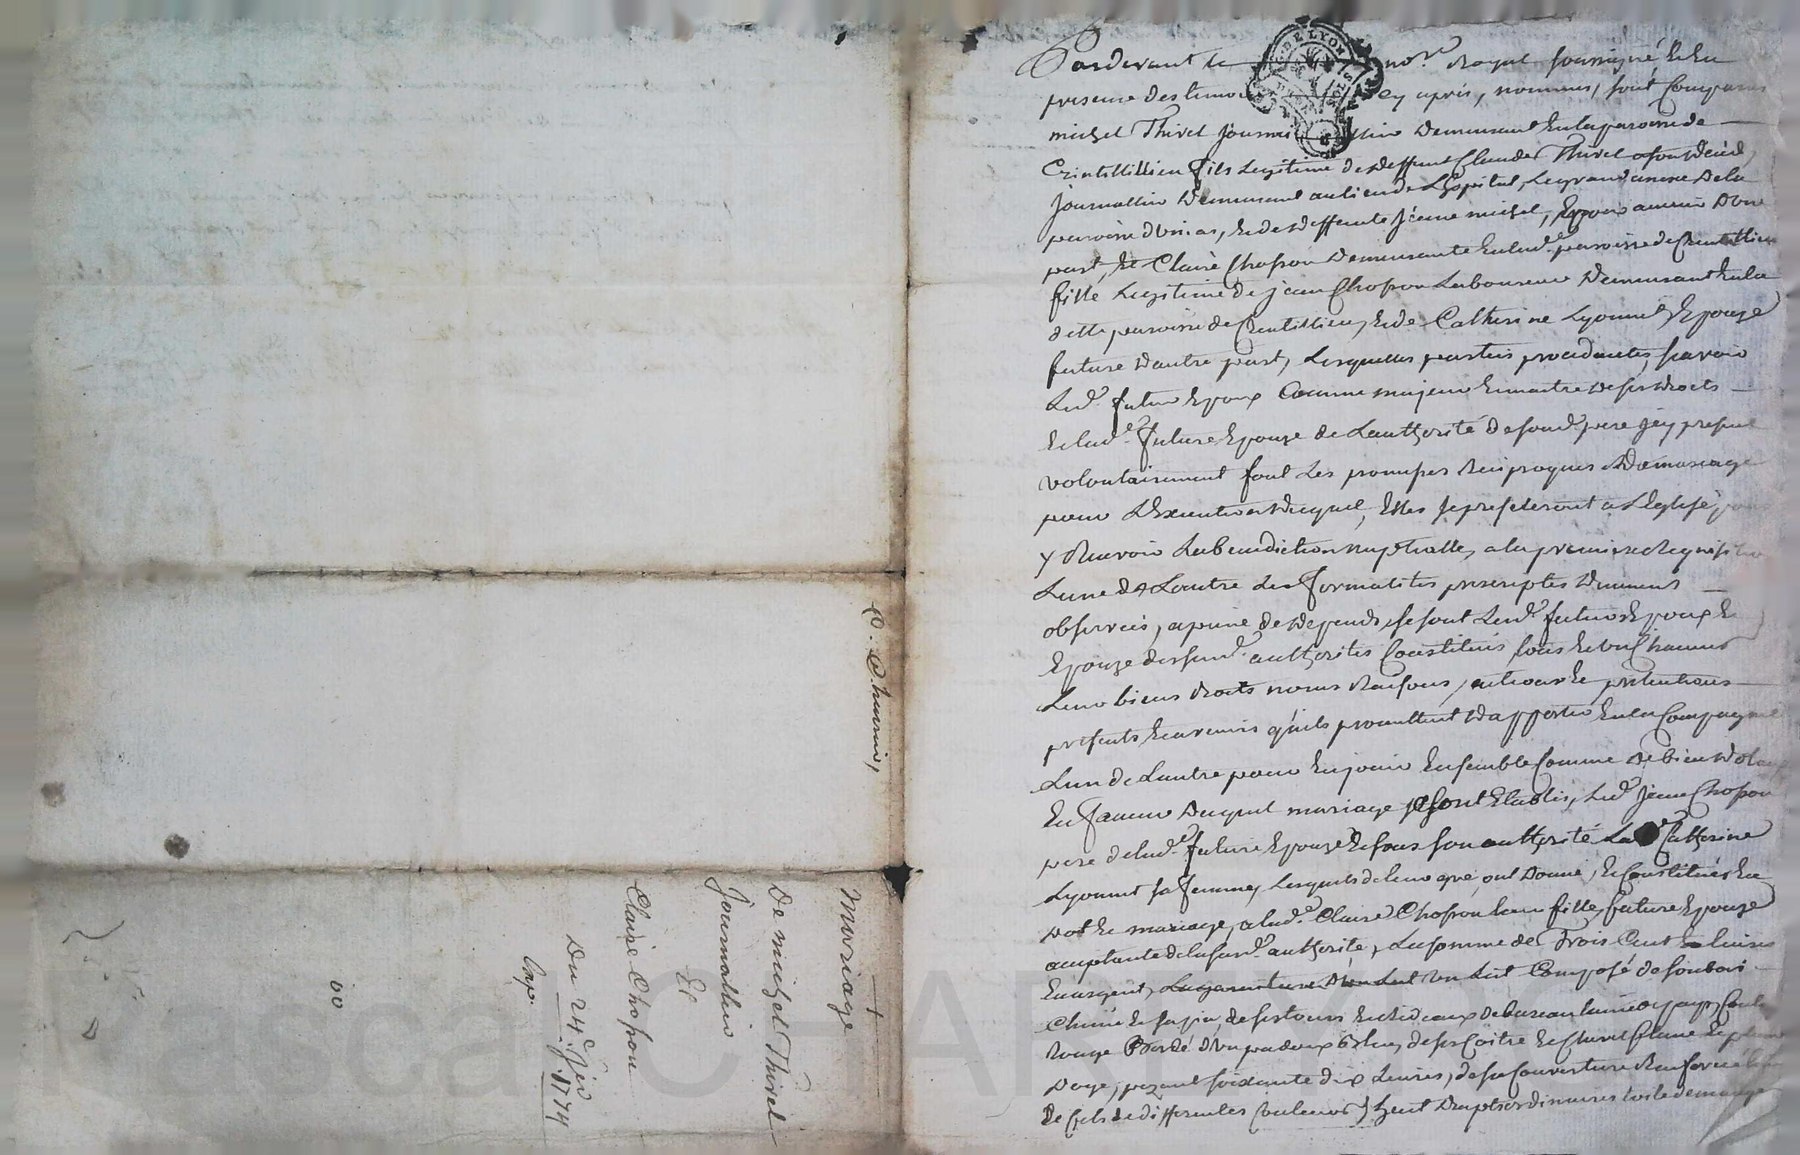 Mariage
De michel Thivel
Journallier
Et
Claire Chopon
Du 24e fév 1774
Cap.
Pardevant le no.re Royal soussigné Et En
presence des temoins cy apres, nommes, sont Comparus
michel Thivel Journallier Demeurant En la paroisse de
Crintillieu fils Legitime de deffunt Claude Thivel a son deces,
Journallier Demeurant au lieu de L'hopital, Le grand
paroisse Et de deffunte Jeanne michel, Epoux avenir D'une
part, Et Claire Chopon Demeurante En lad.e paroisse de Crentillieu
fille Legitime de jean Chopon Laboureur Demeurant En la
dette paroisse de Crentillieu, Et de Catherine Lyonnet, Epouze
future D'autre part, Lesquelles parties procedantes, scavoir
Led.t futur Epoux Comme majeur Et maitre de ses Droits
Et lad.e future Epouze de L'authorité de son d.t pere icy present
volontairement font Les promesses Reciproques De mariage
pour L'Execution Duquel, Elles se presenteront a L'Eglise pour
y Recevoir La benediction nuptialle, a la premiere Requisition
L'une de L'autre Les formalités prescriptes Duement
observées, a peine de Depends, se sont Led.t futur Epoux Et
Epouze desusd.t authorités Constitués tous Et un Chacuns
Leurs biens Droits noms Raisons, actions Et pretentions
presents Et avenirs qu'ils promettent D'apporter En la Compagnie
L'un de L'autre pour En jouir Ensemble Comme de bien Dotaux
En faveur Duquel mariage se sont Etablis, Led.t jean Chopon
pere de lad.e future Epouze Et sous son authorité La d.e Catherine
Lyonnet sa femme, Lesquels de leur gré, ont Donné, Et Constitué En
Dot Et mariage, a lad.e Claire Chopon leur fille, future Epouze
acceptante de la susd.t authorité, La somme de Trois Cent Livres
En argent, La garniture D'un Lit Un Lit Composé de son bois
Chene Et sapin, de ses tours Et Rideaux de
Rouge Bordé D'un padoux bleu, de sa Coitre Et Chevet
D'oye, pezant soixante dix Livres, de sa Couverture
De fils de differentes Couleurs, huit Draps ordinaires toile de menage